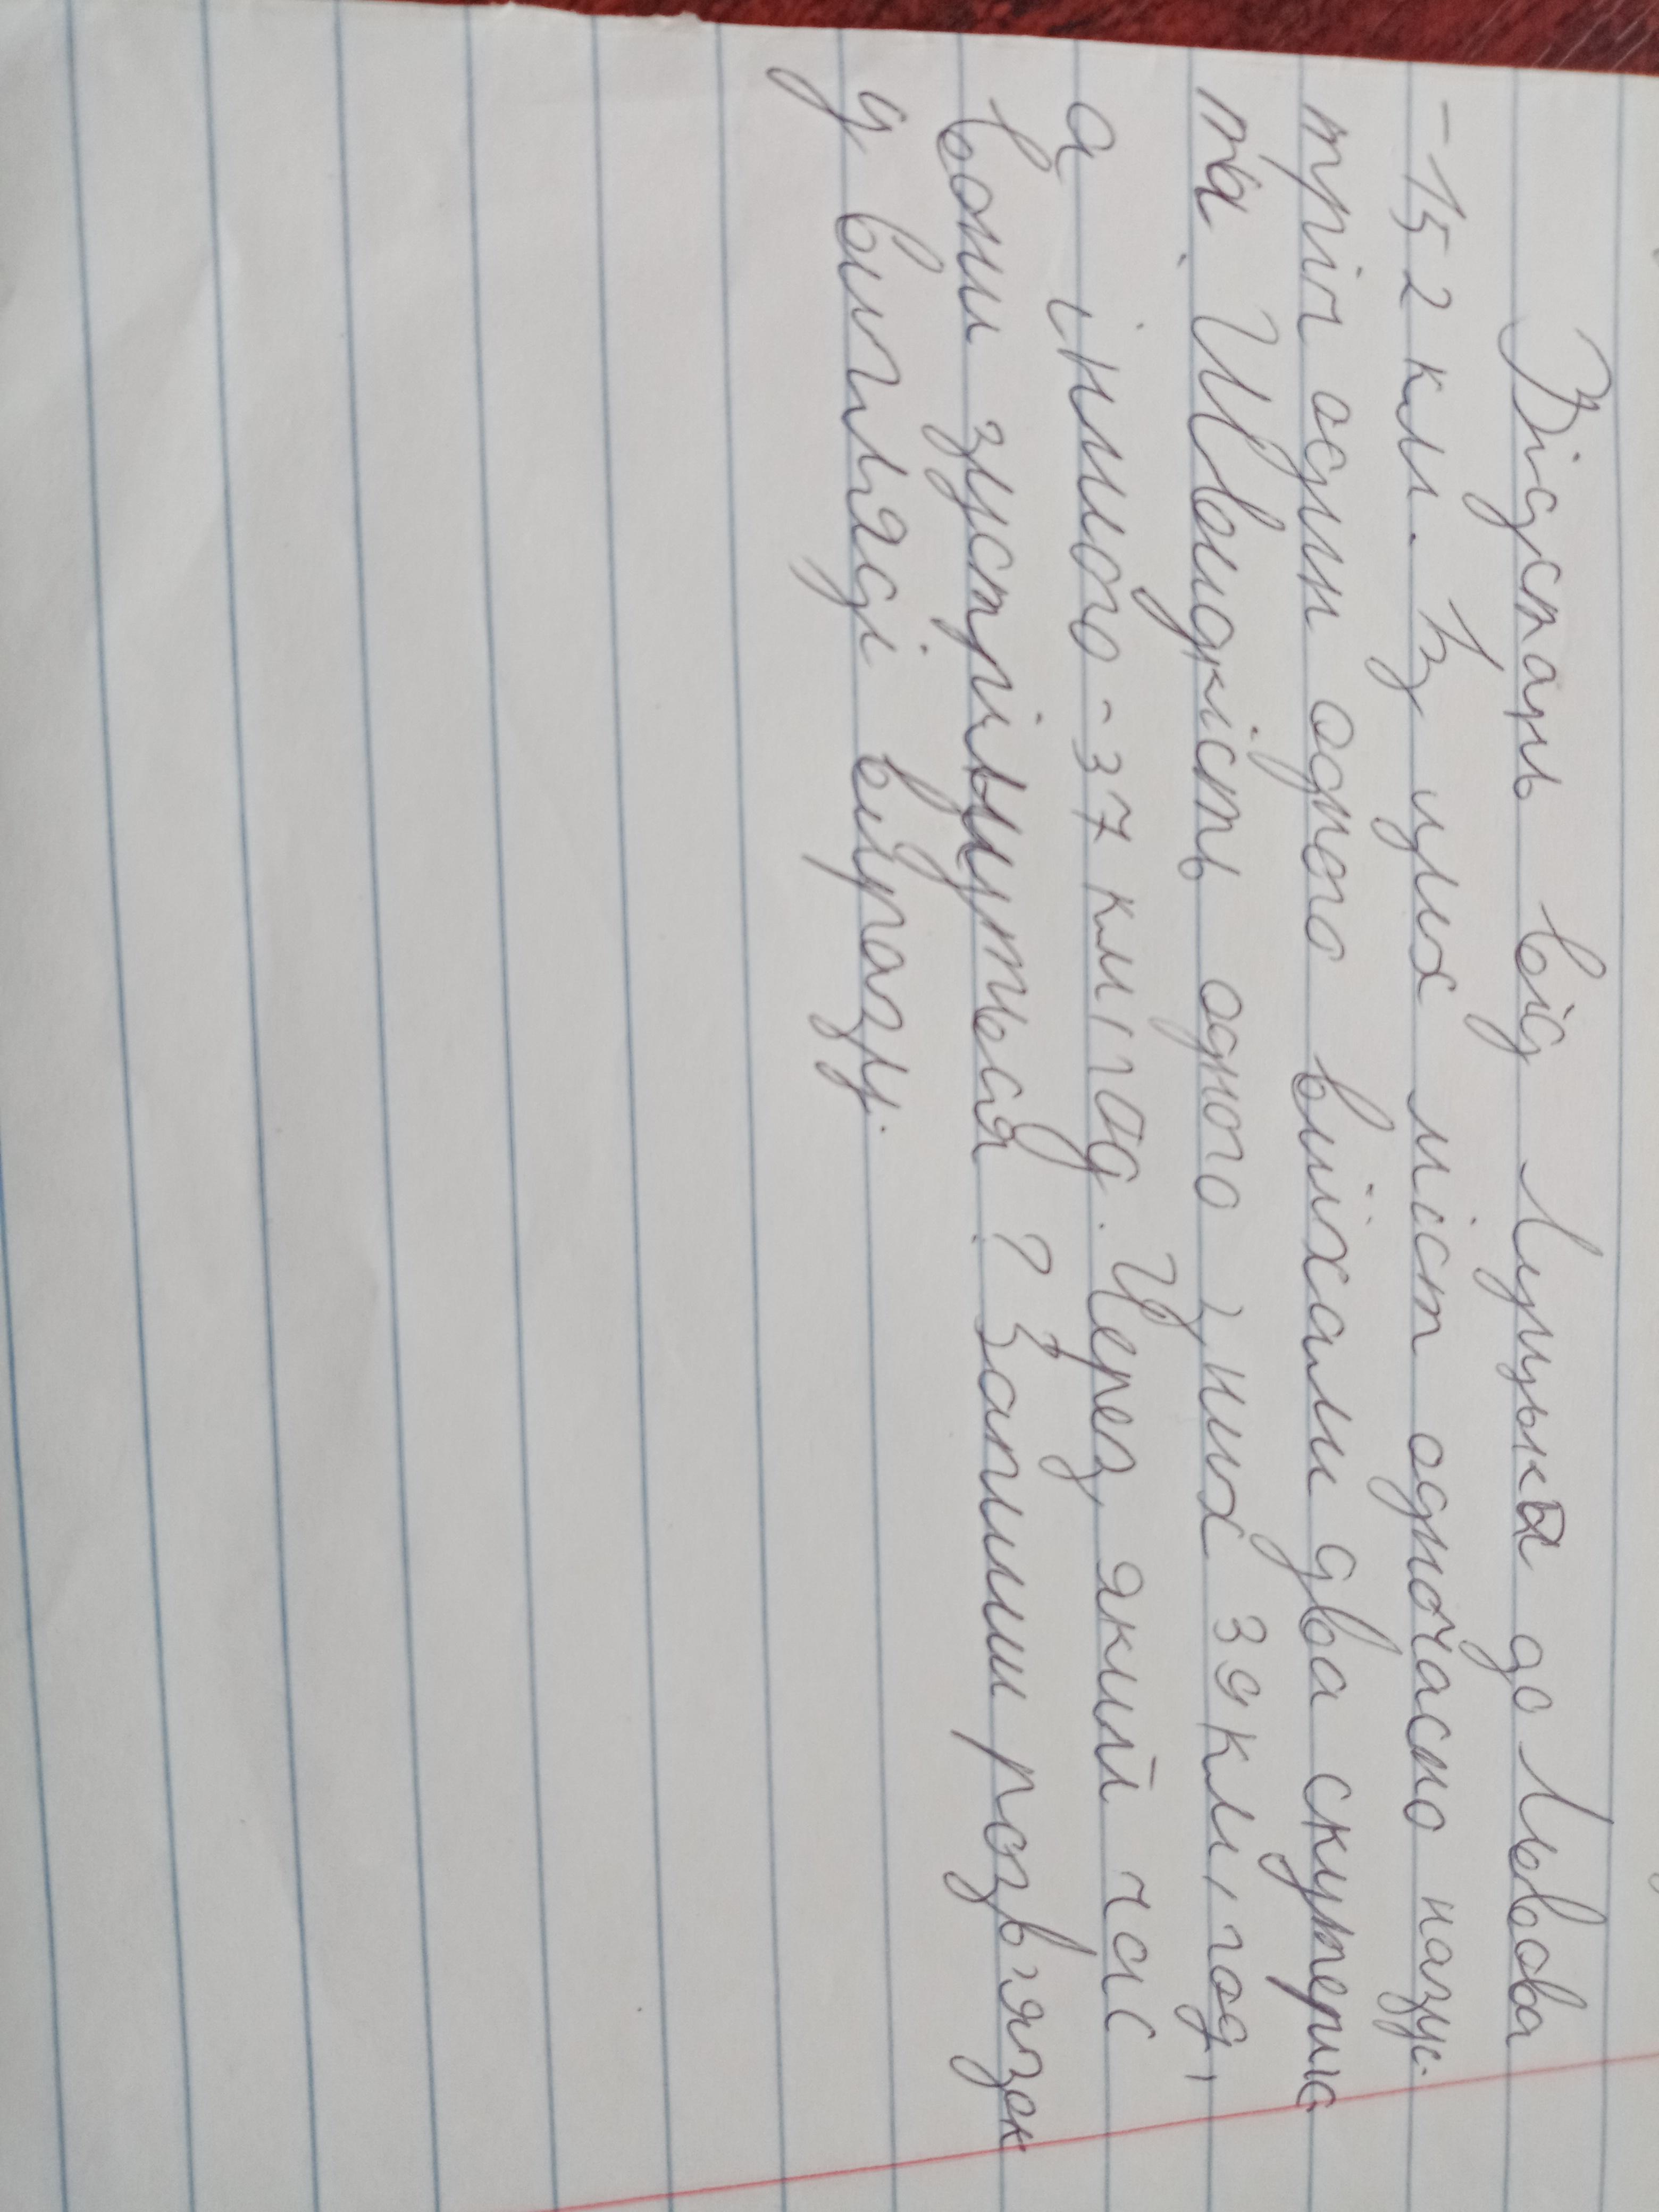 Відстань від Луцька до Львова
- 152 км. Із цих міст одночасно назус-
тріч один одного виїхали два скутерис
та. Швидкість одного з них 39 км/год,
а іншого - 37 км/год. Через який час
вони зустрінуться? Запиши розв'язок
у вигляді виразу.